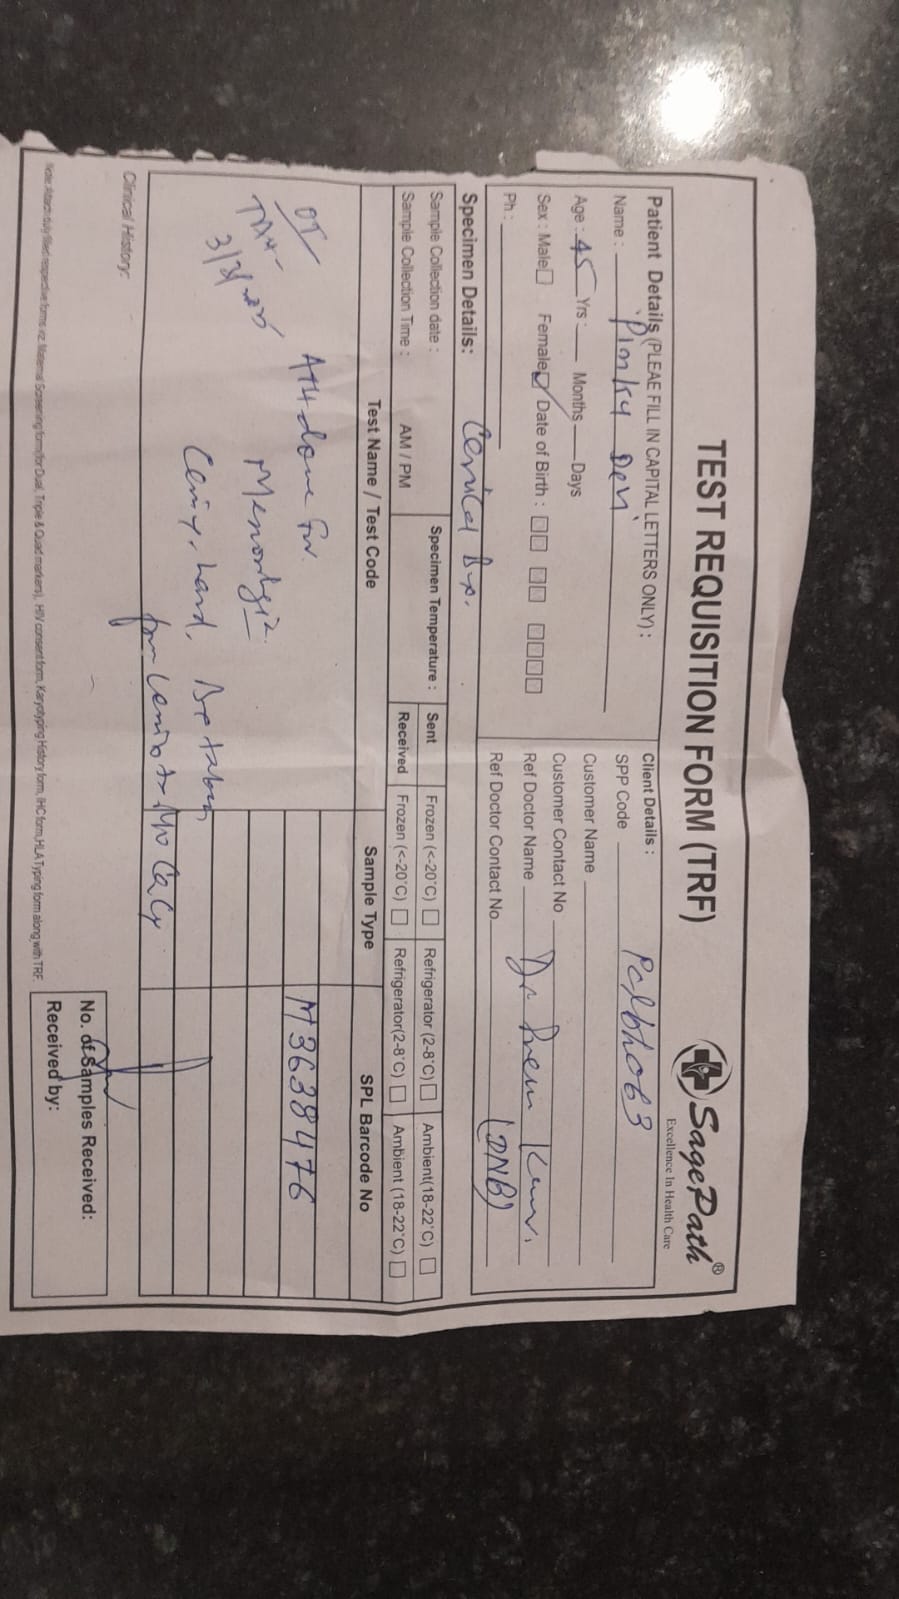 TEST REQUISITION FORM (TRF)
SagePath®
Excellence In Health Care
Patient Details (PLEAE FILL IN CAPITAL LETTERS ONLY) :
Name : Pinky Devi
Age : 45 Yrs : Months Days
Sex : Male Female Date of Birth :
Ph :
Client Details :
SPP Code
Customer Name
Customer Contact No
Ref Doctor Name Dr Prem
Ref Doctor Contact No. (DNB)
Specimen Details: Cervical Bx.
Sample Collection date :
Sample Collection Time : AM / PM
Specimen Temperature :
Sent Frozen (<-20°C) Refrigerator (2-8°C) Ambient(18-22°C)
Received Frozen (<-20°C) Refrigerator(2-8°C) Ambient (18-22°C)
Test Name / Test Code Sample Type SPL Barcode No
M3638476
done for
hard,
from
Clinical History:
No. of Samples Received:
Received by:
Note: Attach duly filled respective forms viz. Maternal Screening form(for Dual, Triple & Quad markers), HIV consent form, Karyotyping History form, IHC form,HLA Typing form along with TRF.